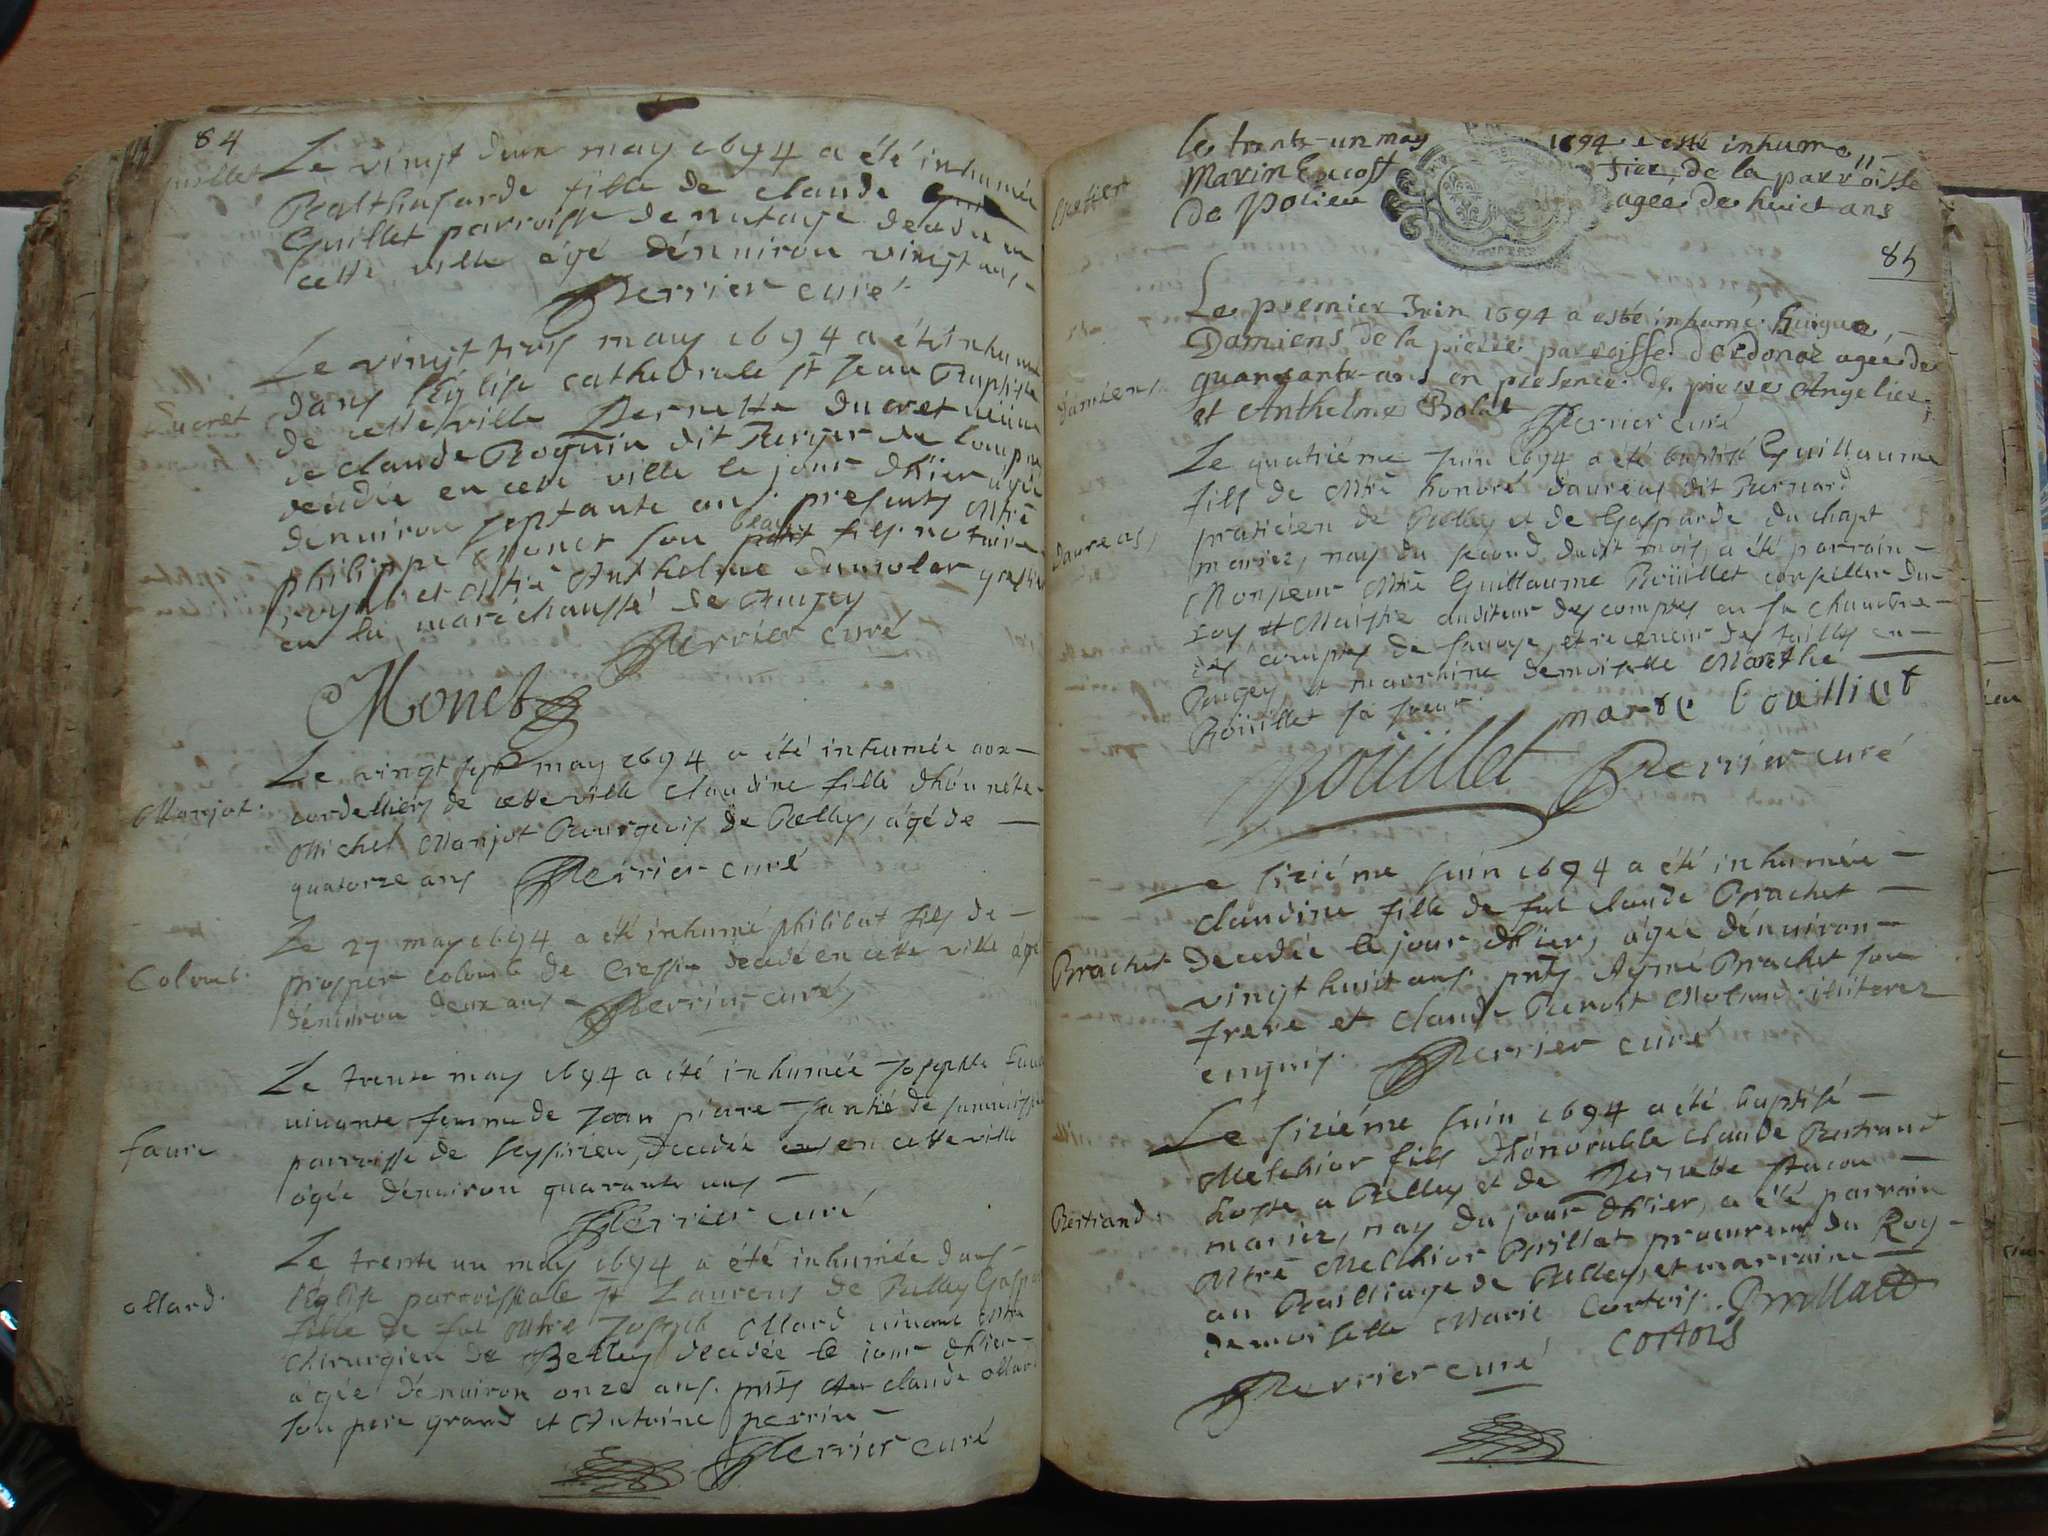 84
Le vingt deux may 1694 a été inhumée
Balthasarde fille de Claude
Guillet parroisse de decedée en
cette ville âgé dénuiron vingt ans
Perrier curé
Ducret
Le vingt trois may 1694 a été inhumée
dans l'Église cathedrale st Jean Baptiste
de cette ville Pernette Ducret
de Claude Roguin dit
decedée en cette ville le jour d'hier âgée
denuiron septante ans presents Mtre
philippe Monet son beau fils notaire
royal et Mtre Anthelme greffier
en la maréchaussé de Bugey
Perrier curé
Monet
Marjot
Le vingt sept may 1694 a été inhumée aux
cordelliers de cette ville Claudine fille d'hónnéte
Michel Marjot Bourgeois de Belley, âgé de
quatorze ans Perrier curé
Colomb
Le 27 may 1694 a été inhumé philibert fils de
prosper colomb de Cressin decedé en cette ville âgé
dénuiron deux ans Perrier curé
faure
Le trente may 1694 a été inhumée Josephte faure
uiuante femme de Jean pierre de
parroisse de Ceyssirieu, Decedée en cette ville
âgée dénuiron quarante ans
Perrier curé
Allard
Le trente un may 1694 a été inhumée dans
l'Église parroissiale st Laurens de Belley
fille de feu Mtre Joseph Allard uiuant Mtre
chirurgien de Belley decedée le jour d'hier
âgée dénuiron onze ans. pnts Claude Allard
son pere grand et Antoine perrin
Perrier curé
le trente-un may 1694 a esté inhumé
Marin de la parroisse
de Polieu agee de huict ans
85
Damiens
Le premier Juin 1694 a esté inhumé hugue
Damiens de la pierre parroisse d'Ordonaz agee de
quarante ans en presence de pierre Angelier
et Anthelme Bolat
Perrier curé
Daureas
Le quatriéme Juin 1694 a été baptisé Guillaume
fils de Mtre honoré daureas dit Bernard
praticien de Belley et de Gasparde du chapt
mariez, nay du second dudit mois, a été parrain
Monsieur Mtre Guillaume Roüillet conseiller du
roy et Maistre auditeur des comptes en sa chambre
des comptes de sauoye, et receueur des tailles en
Bugey et marrhine demoiselle Marthe
Roüillet sa soeur
marte
Roüillet Perrier curé
Brachet
Le siziéme Juin 1694 a été inhumée
Claudine fille de feu Claude Brachet
decedée le jour d'hier, âgée dénuiron
vingt huit ans. pnts Aymé Brachet son
frere et Claude Benoit illiterez
enquis. Perrier curé
Bertrand
Le siziéme Juin 1694 a été baptisé
Melchior fils d'hónorable Claude Bertrand
hoste a Belley et de Pernette
mariez, nay du jour d'hier, a été parrain
Mtre Melchior Brillat procureur du Roy
au Bailliage de Belley, et marraine
demoiselle Marie Cortois. Brillat
cortois
Perrier curé